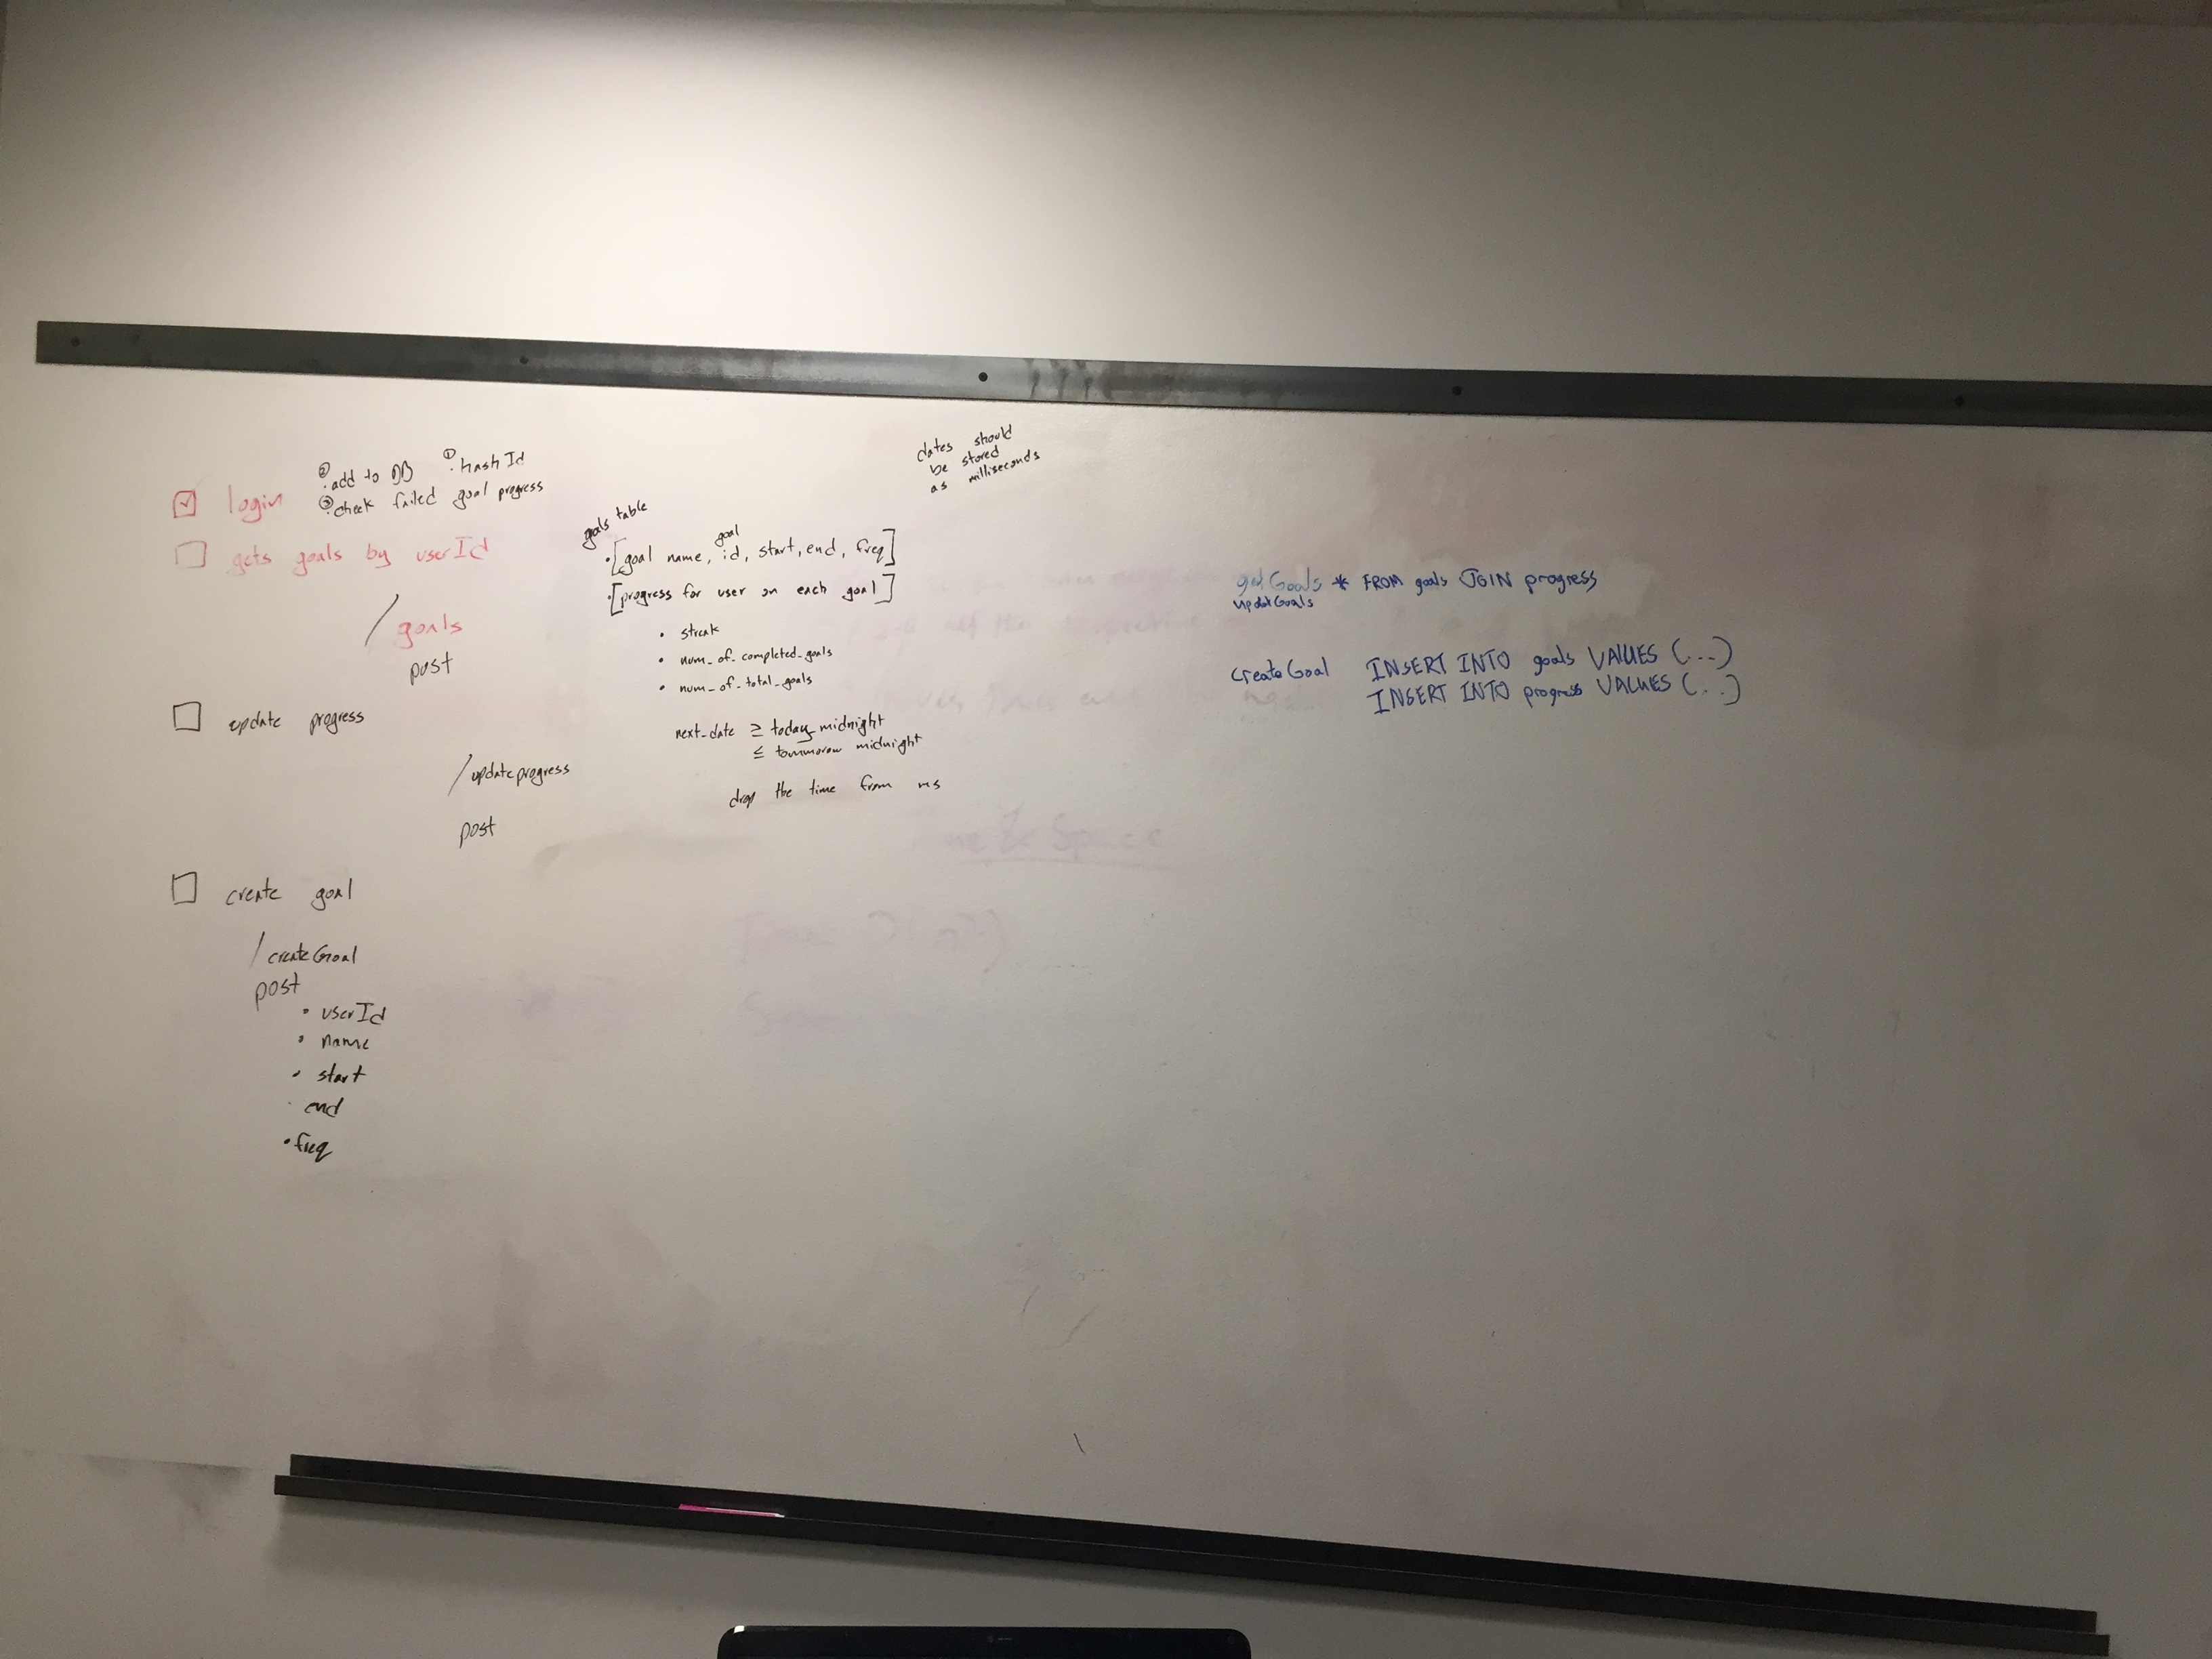 ② . add to DB ① . hashId
☑ login ③ . check failed goal progress
☐ gets goals by userId
/ goals
post
☐ update progress
/ updateprogress
post
☐ create goal
/ createGoal
post
• userId
• name
• start
· end
• freq
goals table
goal
• [goal name, id, start, end, freq]
• [progress for user on each goal]
• streak
• num_of_completed_goals
• num_of_total_goals
next_date ≥ today midnight
≤ tommorow midnight
drop the time from ms
dates should
be stored
as milliseconds
getGoals * FROM goals JOIN progress
updateGoals
createGoal INSERT INTO goals VALUES (...)
INSERT INTO progress VALUES (...)
& Space